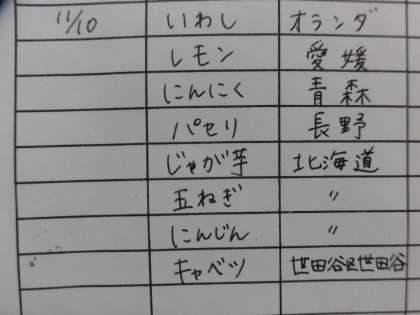 11/10 いわし オランダ
レモン 愛媛
にんにく 青森
パセリ 長野
じゃが芋 北海道
玉ねぎ 〃
にんじん 〃
キャベツ 世田谷区世田谷